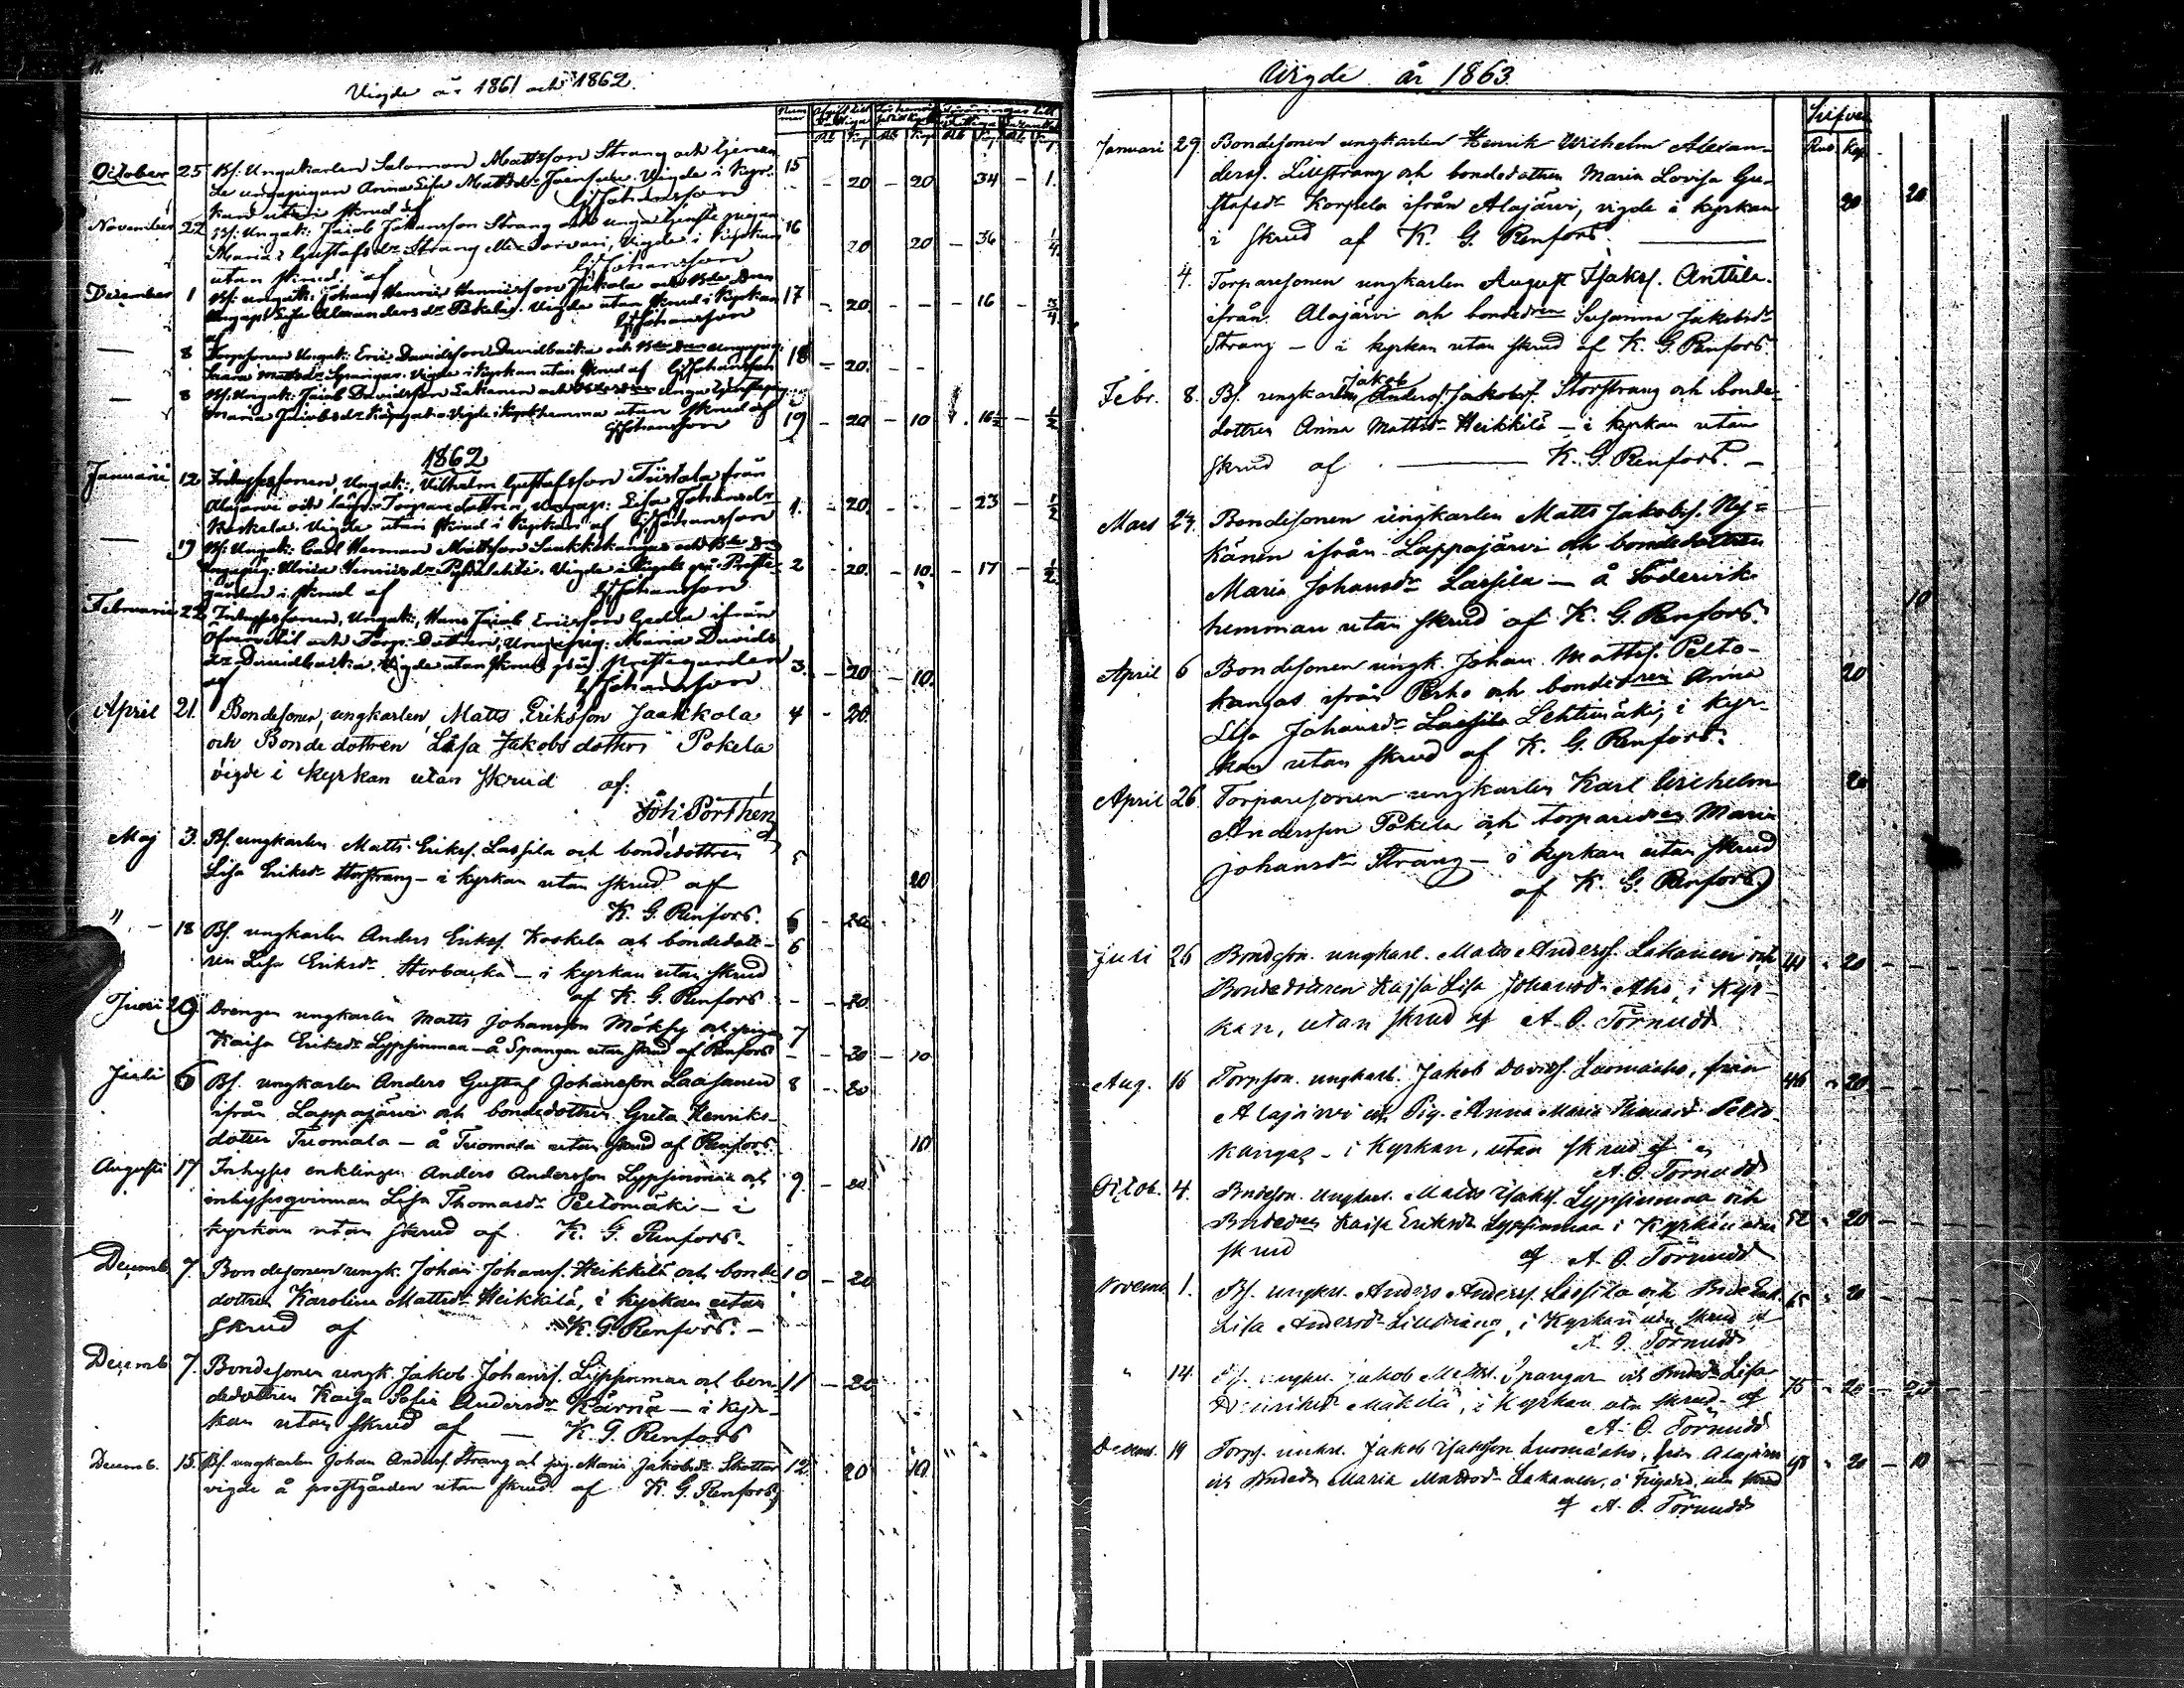 Vigde år 1861 och 1862.
October 25 Bs: Ungakarlen Salomon Mattsson Strang och
Anna Lisa Mattsdr Vigde i Kyr- 15 - 20 - 20 34 - 1.
kan utan skrud af GJohansson
November 22 Bs: Ungak: Jacob Johansson Strang och unga 16
Maria Gustafsdr Strang Vigde i Kyrkan 20 20 - 36 - 1/4
utan skrud af GJohansson
December 1 Bs: ungak: Johan Henric Henricsson och Bdr 17 - 20 - - - 16 - 3/4
Lisa Alexandersdr Pokela. Vigde utan skrud i Kyrkan
af GJohansson
— 8 Torpsonen Ungak: Eric Davidsson Davidbacka och 18 - 20. - -
Mattsdr Spangar. Vigde i Kyrkan utan skrud af GJohansson
— 8 Bs: Ungak: Jacob Davidsson Lakanen och
Maria Jacobsdr Vigde utan skrud af 19 - 20 - 10 16½ - ½
GJohansson
1862
Januarii 12 Inhysessonen, Ungak:, Vilhelm Gustafsson från
Alajärvi och Torparedottren, Ungap: Lisa Johansdr 1. - 20. - - - 23 - ½
Koskela. Vigde utan skrud i Kyrkan af GJohansson
— 19 Bs: Ungak: Carl Herman Mattsson och Bdr
Ungapig: Ulrica Henricsdr Vigde 2 - 20. - 10. - 17 - ½
gården i skrud af GJohansson
Februarii 22 Inhysessonen, Ungak:, Hans Jacob Ericsson Gedda ifrån
Öfvervetil och Torp: Dottren, Ungapig: Maria Davids
dr Davidbacka, Vigde utan skrud på prestegården 3. - 20 - 10.
af GJohansson
April 21. Bondesonen, ungkarlen, Matts Eriksson Jaakkola 4 - 20.
och Bondedottren Lisa Jakobsdotter Pokela
vigde i kyrkan utan skrud af:
Joh: Porthén
Maj 3. Bs. ungkarlen Matts Eriks. Lassila och bondedottren 5
Lisa Eriksdr Storstrang - i kyrkan utan skrud af 20
K. G. Renfors. 6 - 20
" - 18 Bs. ungkarlen Anders Eriks. Koskela och bondedott- 6
ren Lisa Eriksdr Storbacka - i kyrkan utan skrud
af K. G. Renfors - - 20.
Juni 29 Drengen ungkarlen Matts Johansson Möksy och pigan 7
Kaisa Eriksdr Lyppinmaa - å Spangar utan skrud af Renfors - - 20 - 10
Juli 6 Bs. ungkarlen Anders Gustaf Johansson Laasanen 8 - 20
ifrån Lappajärvi och bondedottren Greta Henriks-
dotter Tuomala - å Tuomala utan skrud af Renfors. 10
Augusti 17 Inhyses enklingen Anders Andersson Lyppinmaa och 9. - 20
inhysesqvinnan Lisa Thomasdr Peltomäki - i
kyrkan utan skrud af K. G. Renfors.
Decemb. 7. Bondesonen ungk. Johan Johanss. Heikkilä och bonde 10 - 20
dottren Karolina Mattsdr Heikkilä, i kyrkan utan
skrud af K. G. Renfors. -
Decemb 7. Bondesonen ungk. Jakob Johanss. Lyppinmaa och bon- 11 - 20
dedottren Kaisa Sofia Andersdr Kärnä - i kyr-
kan utan skrud af - K. G. Renfors
Decemb. 15. Bs. ungkarlen Johan Anders. Strang och pig. Maria Jakobsdr Skottar 12. 20 10
vigde å prestgården utan skrud af K. G. Renfors
Vigde år 1863.
Silfver
Rub. Kop.
Januari 29. Bondesonen ungkarlen Henrik Wilhelm Alexan-
derss. Lillstrang och bondedottren Maria Lovisa Gu-
stafsdr Korpela ifrån Alajärvi, vigde i kyrkan 20 20
i skrud af K. G. Renfors.
4. Torparesonen ungkarlen August Isaks. Anttila
ifrån Alajärvi och bondedren Susanna Jakobsdr
Strang - i kyrkan utan skrud af K. G. Renfors.
Febr. 8. Bs. ungkarlen Jakob Anders. Jakobs. Storstrang och bonde-
dottren Anna Mattsdr Heikkilä - i kyrkan utan
skrud af K. G. Renfors. -
Mars 24. Bondesonen ungkarlen Matts Jakobs. Ny-
känen ifrån Lappajärvi och bondedottren
Maria Johansdr Lassila - å Södervik
hemman utan skrud af K. G. Renfors. 10
April 6 Bondesonen ungk. Johan Mattss. Pelto- 20
kangas ifrån Perho och bondedren Anna
Lisa Johansdr Lassila Lehtimäki, i kyr-
kan utan skrud af K. G. Renfors.
April 26. Torparesonen ungkarlen Karl Wilhelm 20
Andersson Pokela och torparedren Maria
Johansdr Strang - i kyrkan utan skrud
af K. G. Renfors
Juli 26 Bondeson. ungkarl. Matts Anderss. Lakanen och 41 - 20 - - - - -
Bondedottren Kajsa Lisa Johansdr Aho, i Kyr-
kan, utan skrud af A. O. Törnudd
Aug. 16 Torpson. ungkarl. Jakob Davids. Luomaaho, från 46 - 20 - - - - -
Alajärvi och Pig. Anna Maria Pelto-
kangas - i Kyrkan, utan skrud af
A. O. Törnudd
Octob. 4. Bondeson. Ungkarl. Matts Isaks. Lyppinmaa och
Bondedren Kaisa Eriksdr Lyppinmaa i Kyrkan utan 52 - 20 - - - - -
skrud af A. O. Törnudd
Novemb. 1. Bs. ungkarl. Anders Anderss. Lassila och Bondedott. 65 - 20 - - - - -
Lisa Andersdr Lillstrang, i Kyrkan utan skrud af
A. O. Törnudd
" 14. Bs. ungkarl. Jakob Matts. Spangar och Bondedr Lisa 75 - 20 - 20 - - -
Henriksdr Mäkelä, i Kyrkan utan skrud af
A. O. Törnudd
Decemb. 19 Torps. unkrl. Jakob Isaksson Luomaaho, från Alajärvi 98 - 20 - 10 - - -
och Bondedr Maria Mattsdr Lakanen, å utan skrud
af A. O. Törnudd